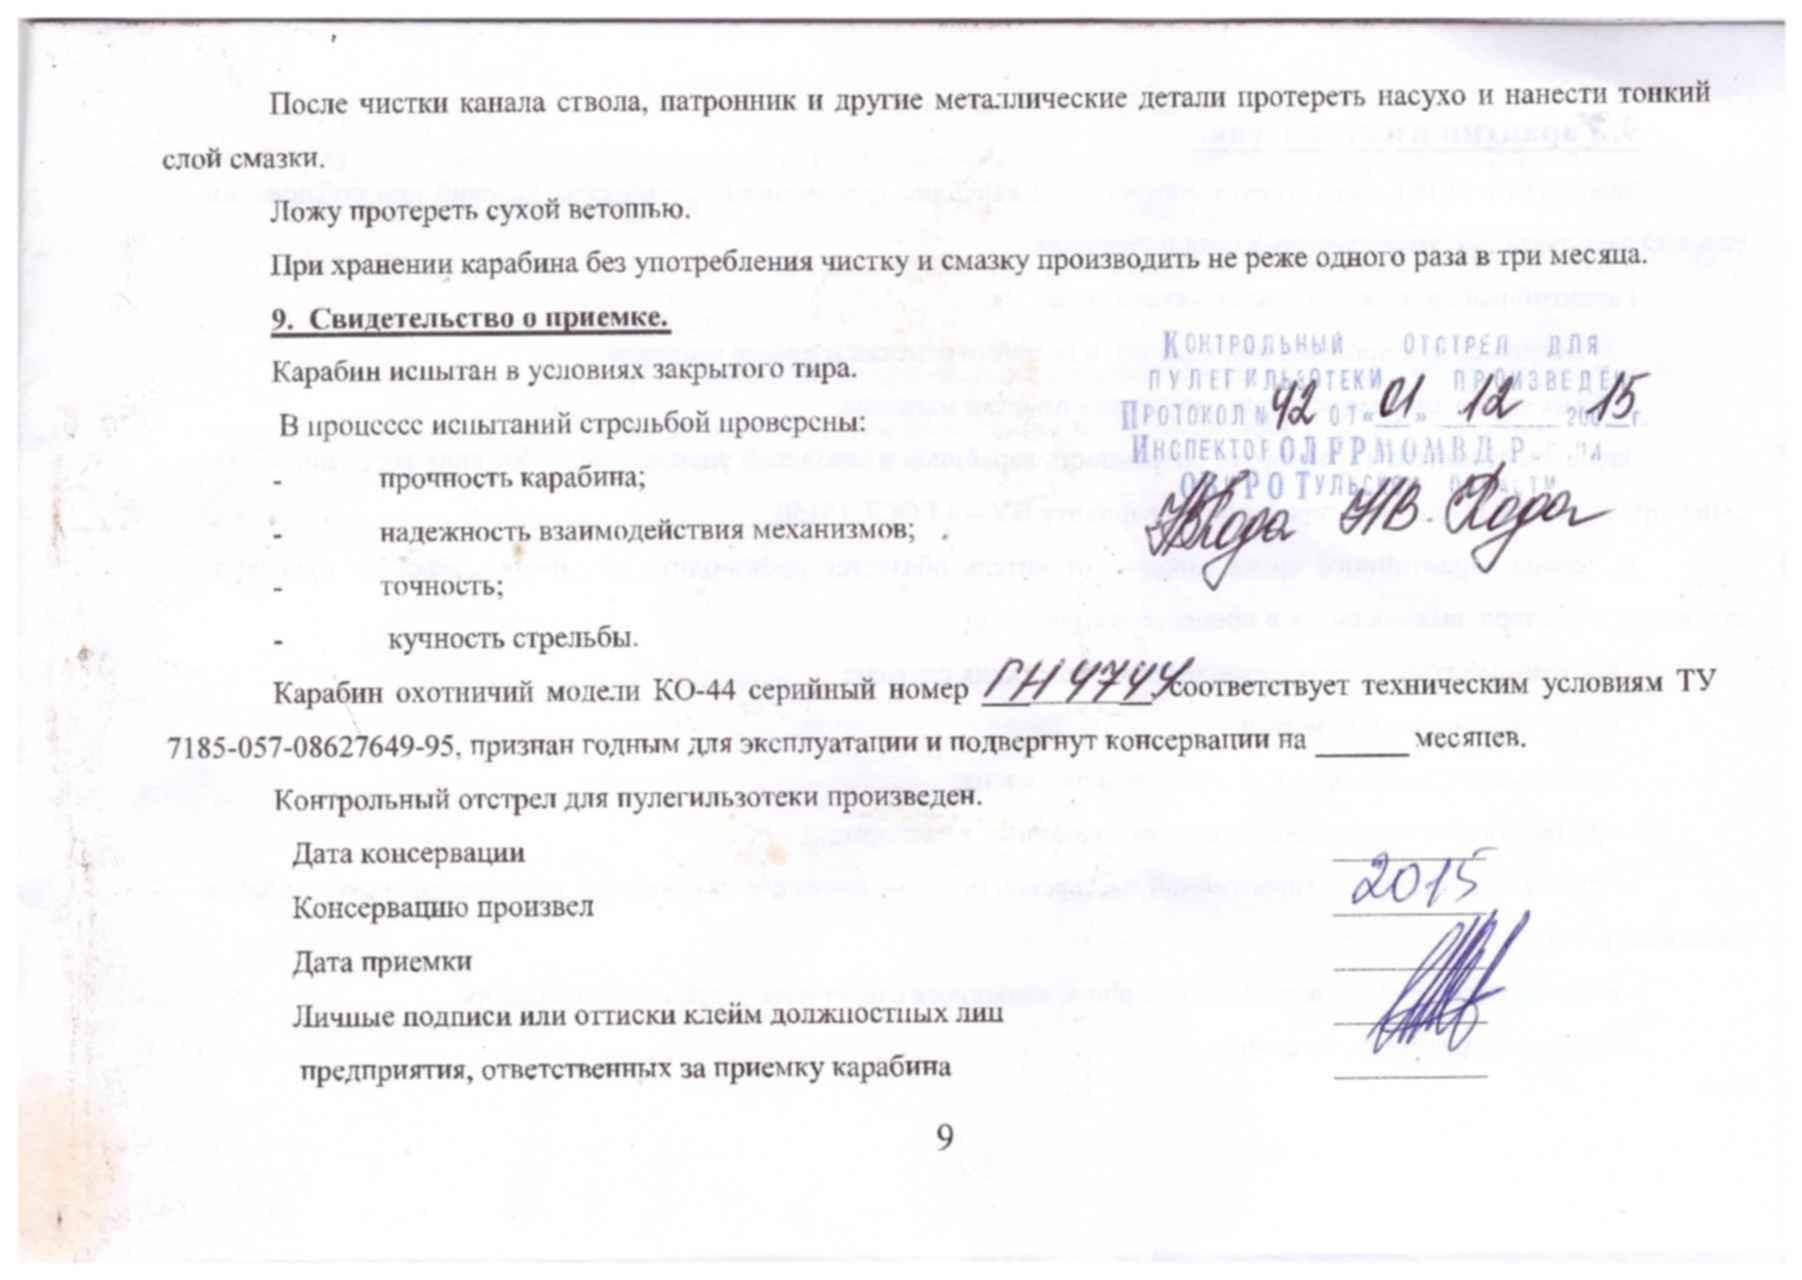 После чистки канала ствола, патронник и другие металлические детали протереть насухо и нанести тонкий
слой смазки.
Ложу протереть сухой ветошью.
При хранении карабина без употребления чистку и смазку производить не реже одного раза в три месяца.
9. Свидетельство о приемке.
Карабин испытан в условиях закрытого тира.
В процессе испытаний стрельбой проверены:
- прочность карабина;
- надежность взаимодействия механизмов;
- точность;
- кучность стрельбы.
КОНТРОЛЬНЫЙ ОТСТРЕЛ ДЛЯ
ПУЛЕГИЛЬЗОТЕКИ ПРОИЗВЕДЕН
ПРОТОКОЛ № 42 ОТ «01» 12 2015 г.
ИНСПЕКТОР
ТУЛЬСКОЙ ОБЛАСТИ
Карабин охотничий модели КО-44 серийный номер РН 4744 соответствует техническим условиям ТУ
7185-057-08627649-95, признан годным для эксплуатации и подвергнут консервации на ______ месяцев.
Контрольный отстрел для пулегильзотеки произведен.
Дата консервации
2015
Консервацию произвел
Дата приемки
Личные подписи или оттиски клейм должностных лиц
предприятия, ответственных за приемку карабина
9